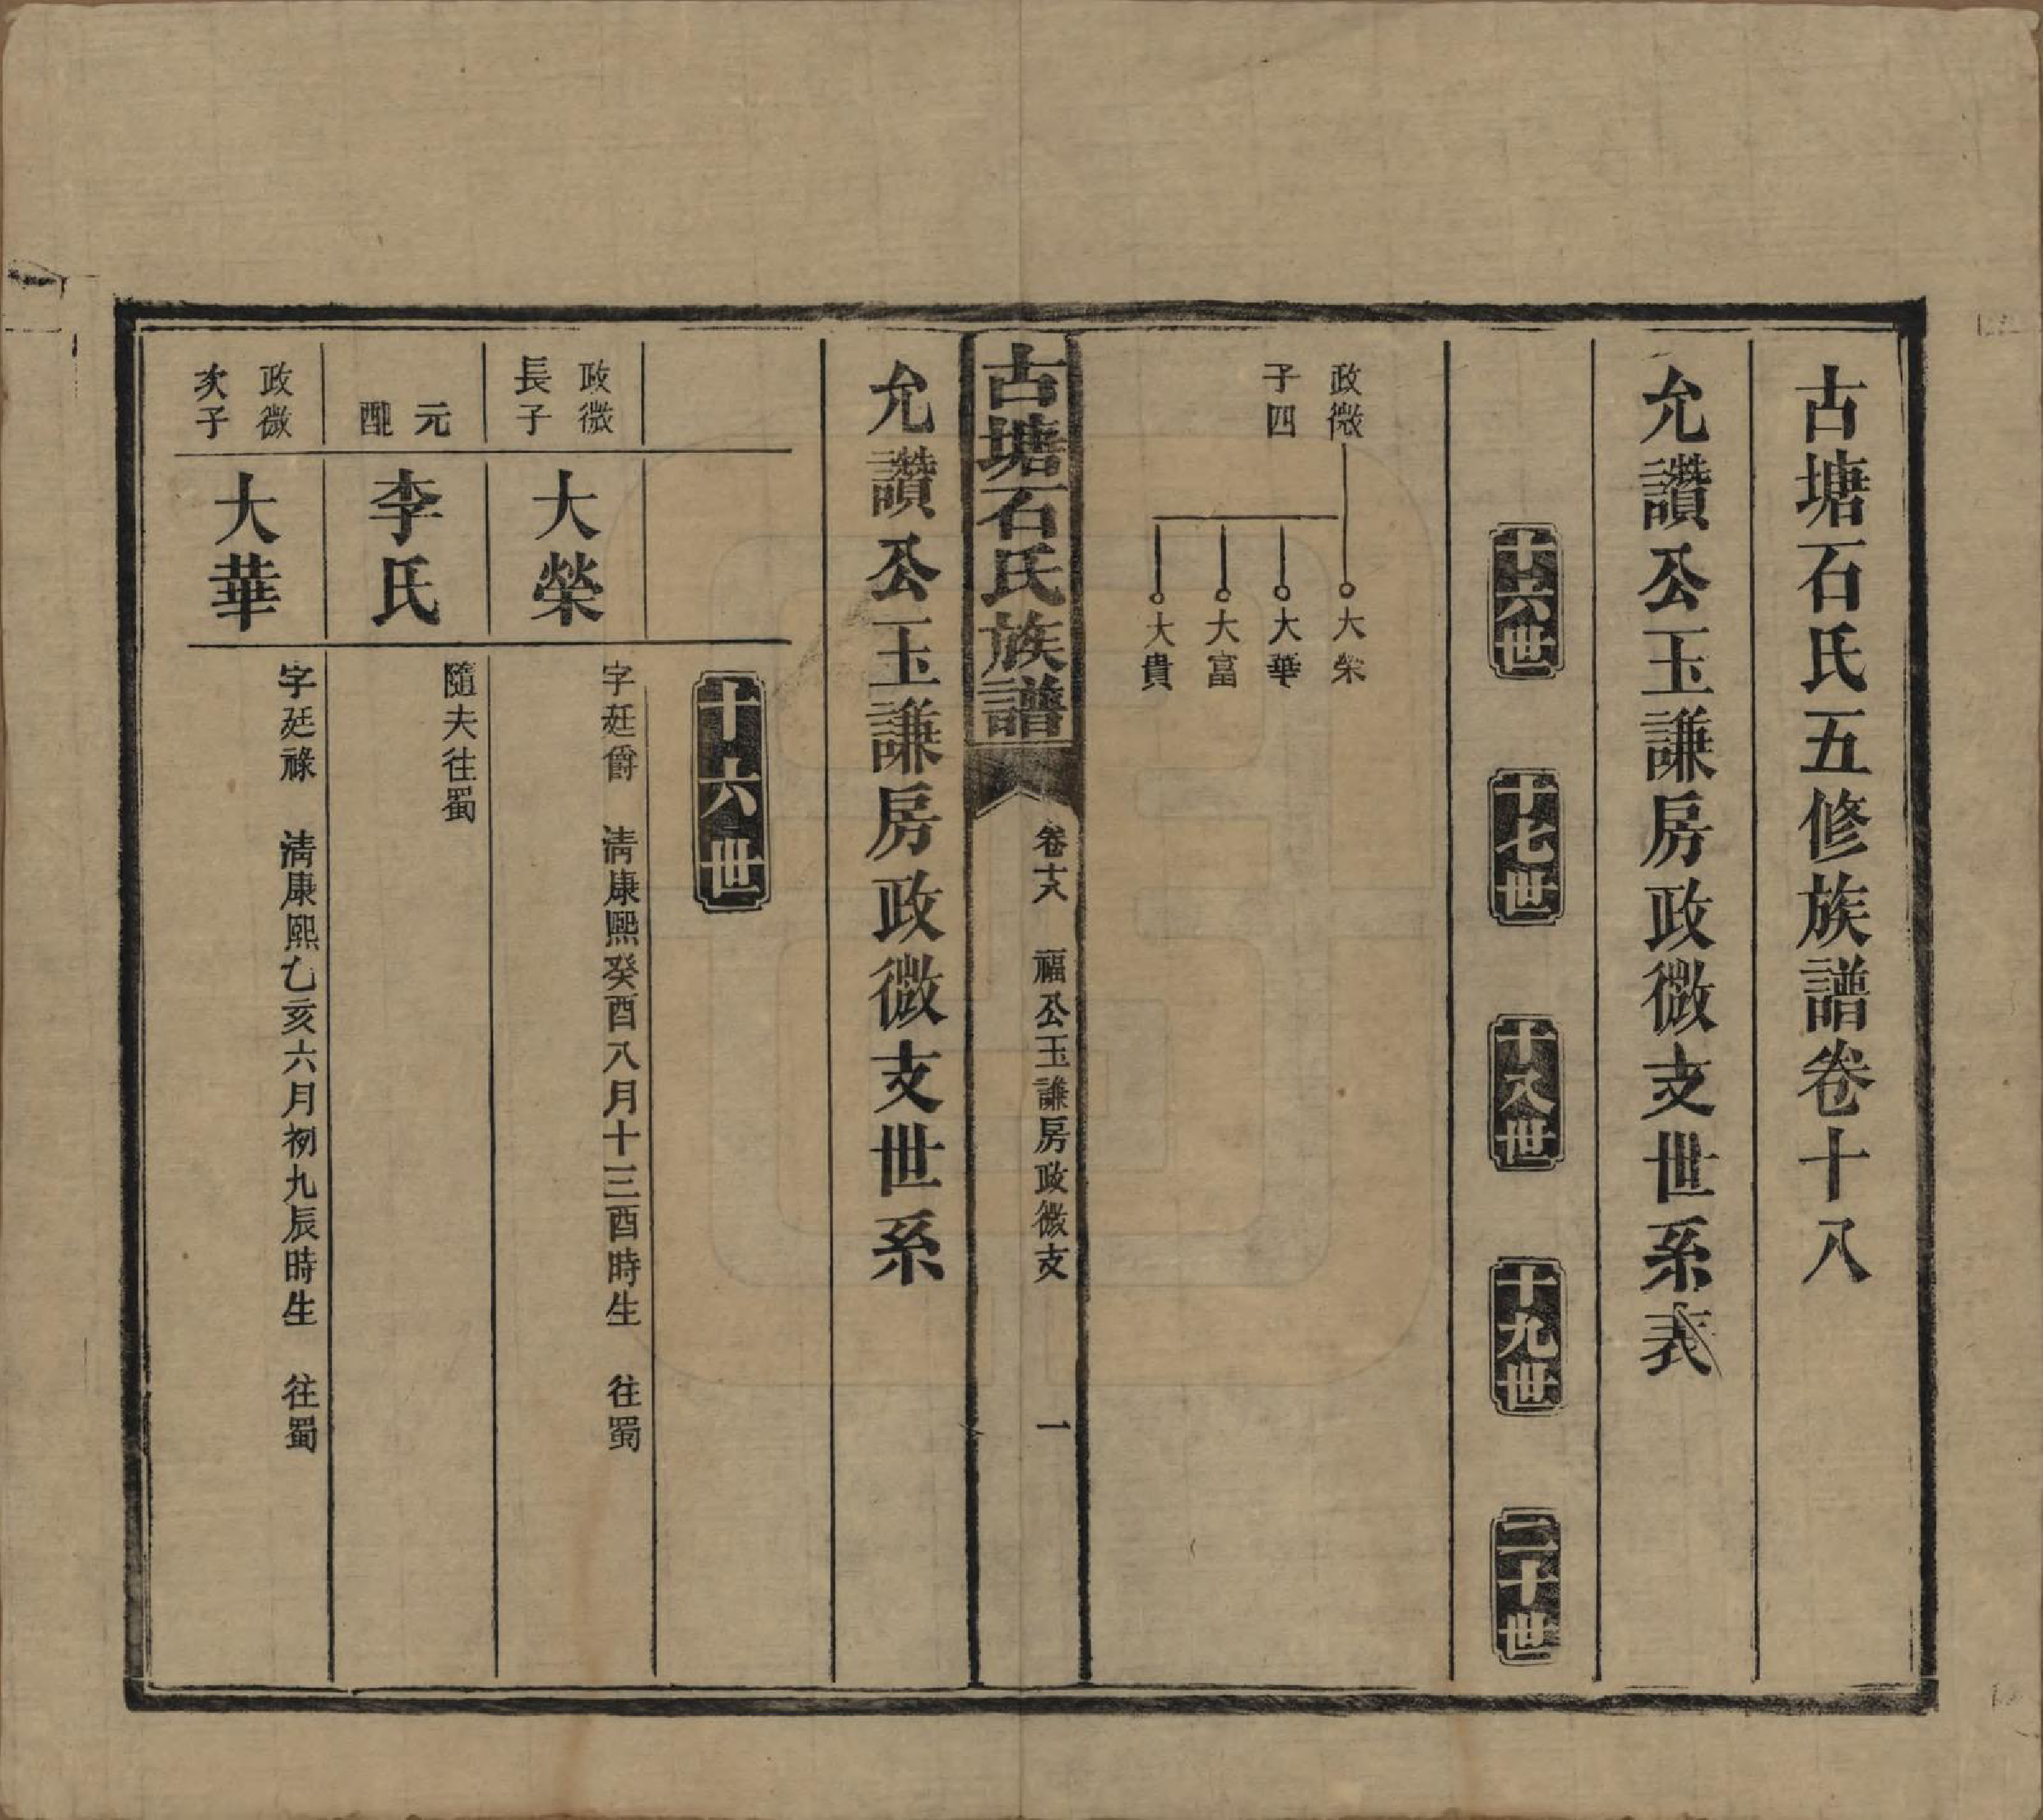 古塘石氏五修族譜卷十八
允讚公玉謙房政微支世系表
十六世
十七世
十八世
十九世
二十世
政微
子四
大榮
大華
大富
大貴
古塘石氏族譜
卷十八
福公玉謙房政微支
一
允讚公玉謙房政微支世系
十六世
政微
長子
大榮
字廷爵 清康熙癸酉八月十三酉時生 往蜀
元配
李氏
隨夫往蜀
政微
次子
大華
字廷祿 清康熙乙亥六月初九辰時生 往蜀